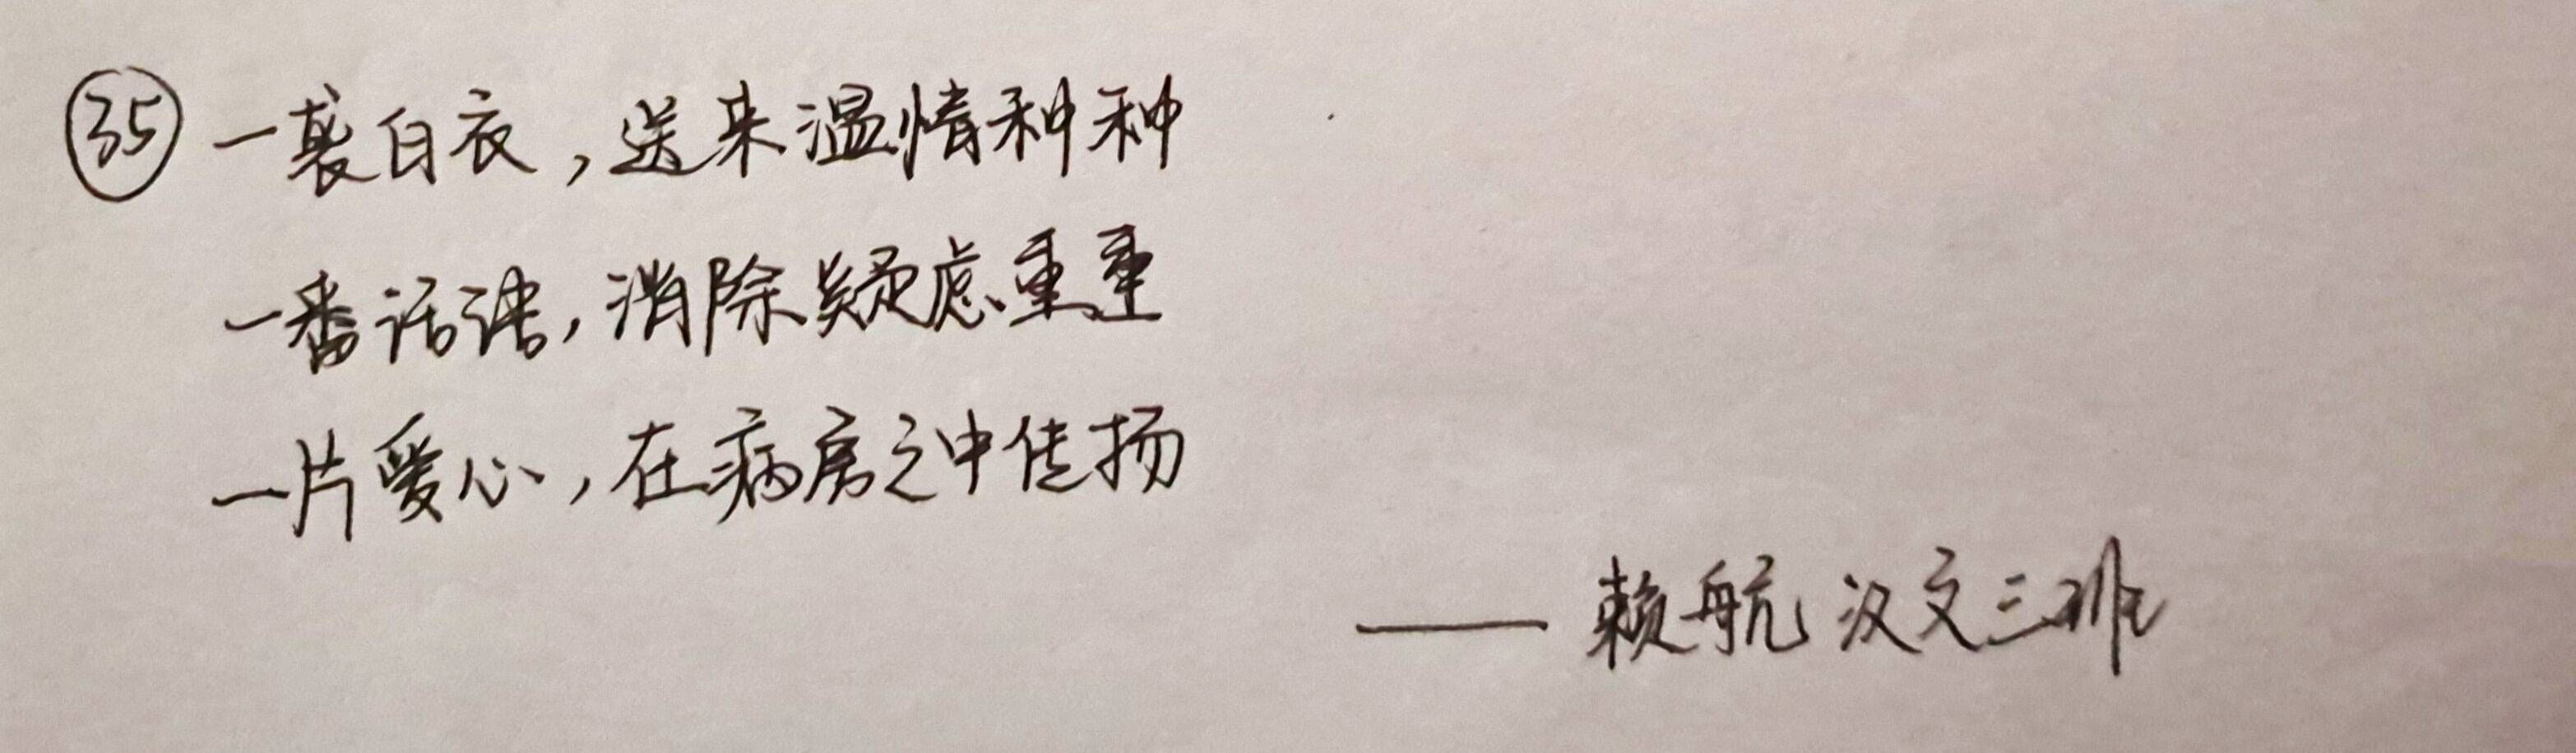 ㉟一袭白衣，送来温情种种
一番话语，消除疑虑重重
一片爱心，在病房之中传扬
——赖航 汉文三班